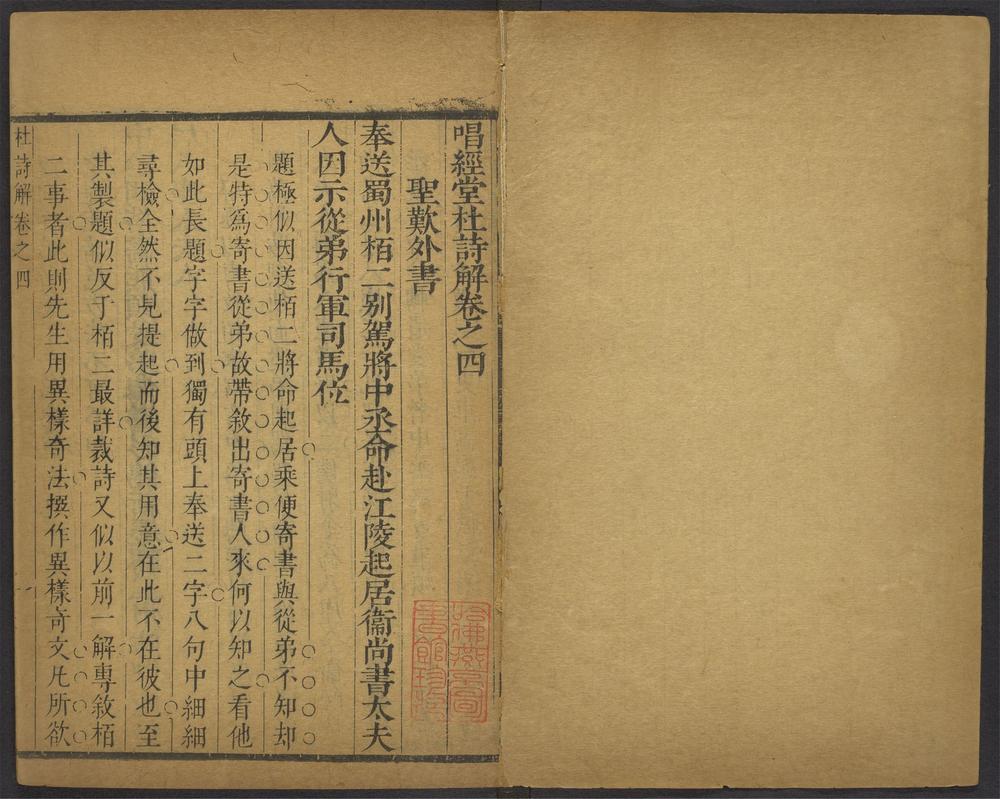 唱經堂杜詩解卷之四
聖歎外書
奉送蜀州栢二别駕將中丞命赴江陵起居衞尚書太夫
人因示從弟行軍司馬位
題極似因送栢二將命起居乘便寄書與從弟不知却
是特爲寄書從弟故帶敘出寄書人來何以知之看他
如此長題字字做到獨有頭上奉送二字八句中細細
尋檢全然不見提起而後知其用意在此不在彼也至
其製題似反于栢二最詳裁詩又似以前一解專敘栢
二事者此則先生用異樣奇法撰作異樣奇文凡所欲
杜詩解卷之四
哈佛燕京圖
書館珍藏